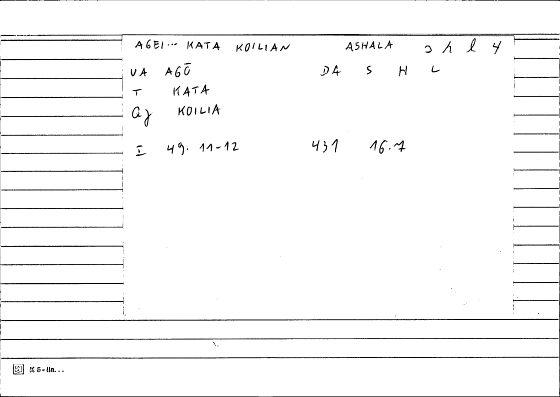 AGEI... KATA KOILIAN ASHALA ɔ h l 4
VA AGŌ DA S H L
T KATA
KOILIA
I 49. 11-12 431 16.7